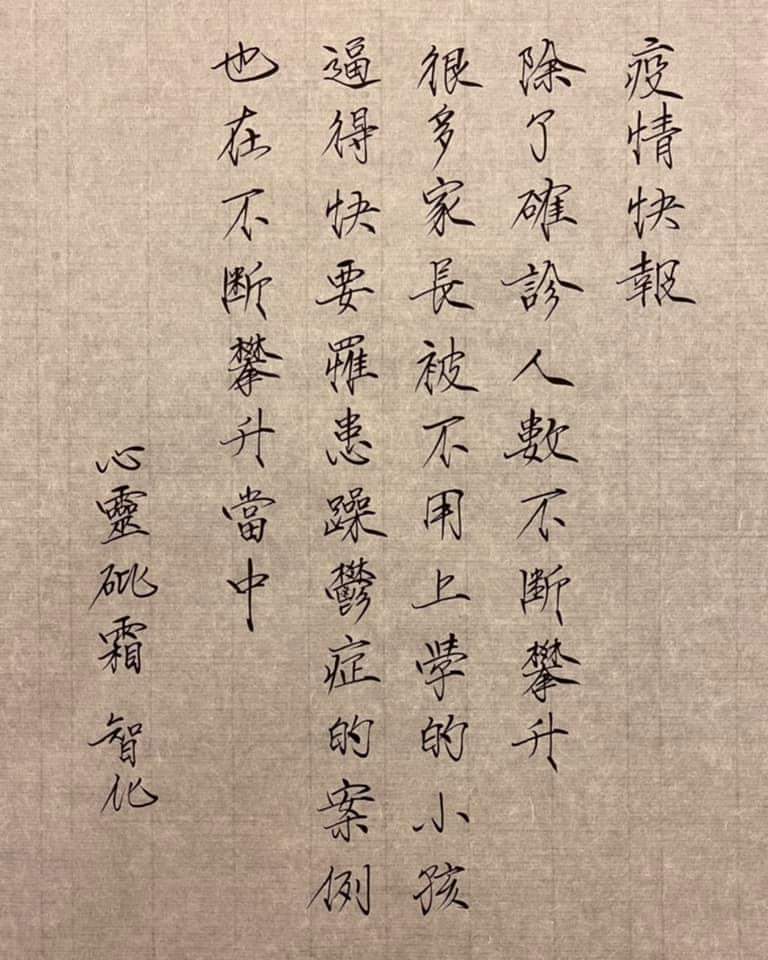 疫情快報
除了確診人數不斷攀升
很多家長被不用上學的小孩
逼得快要罹患躁鬱症的案例
也在不斷攀升當中
心靈砒霜 智化